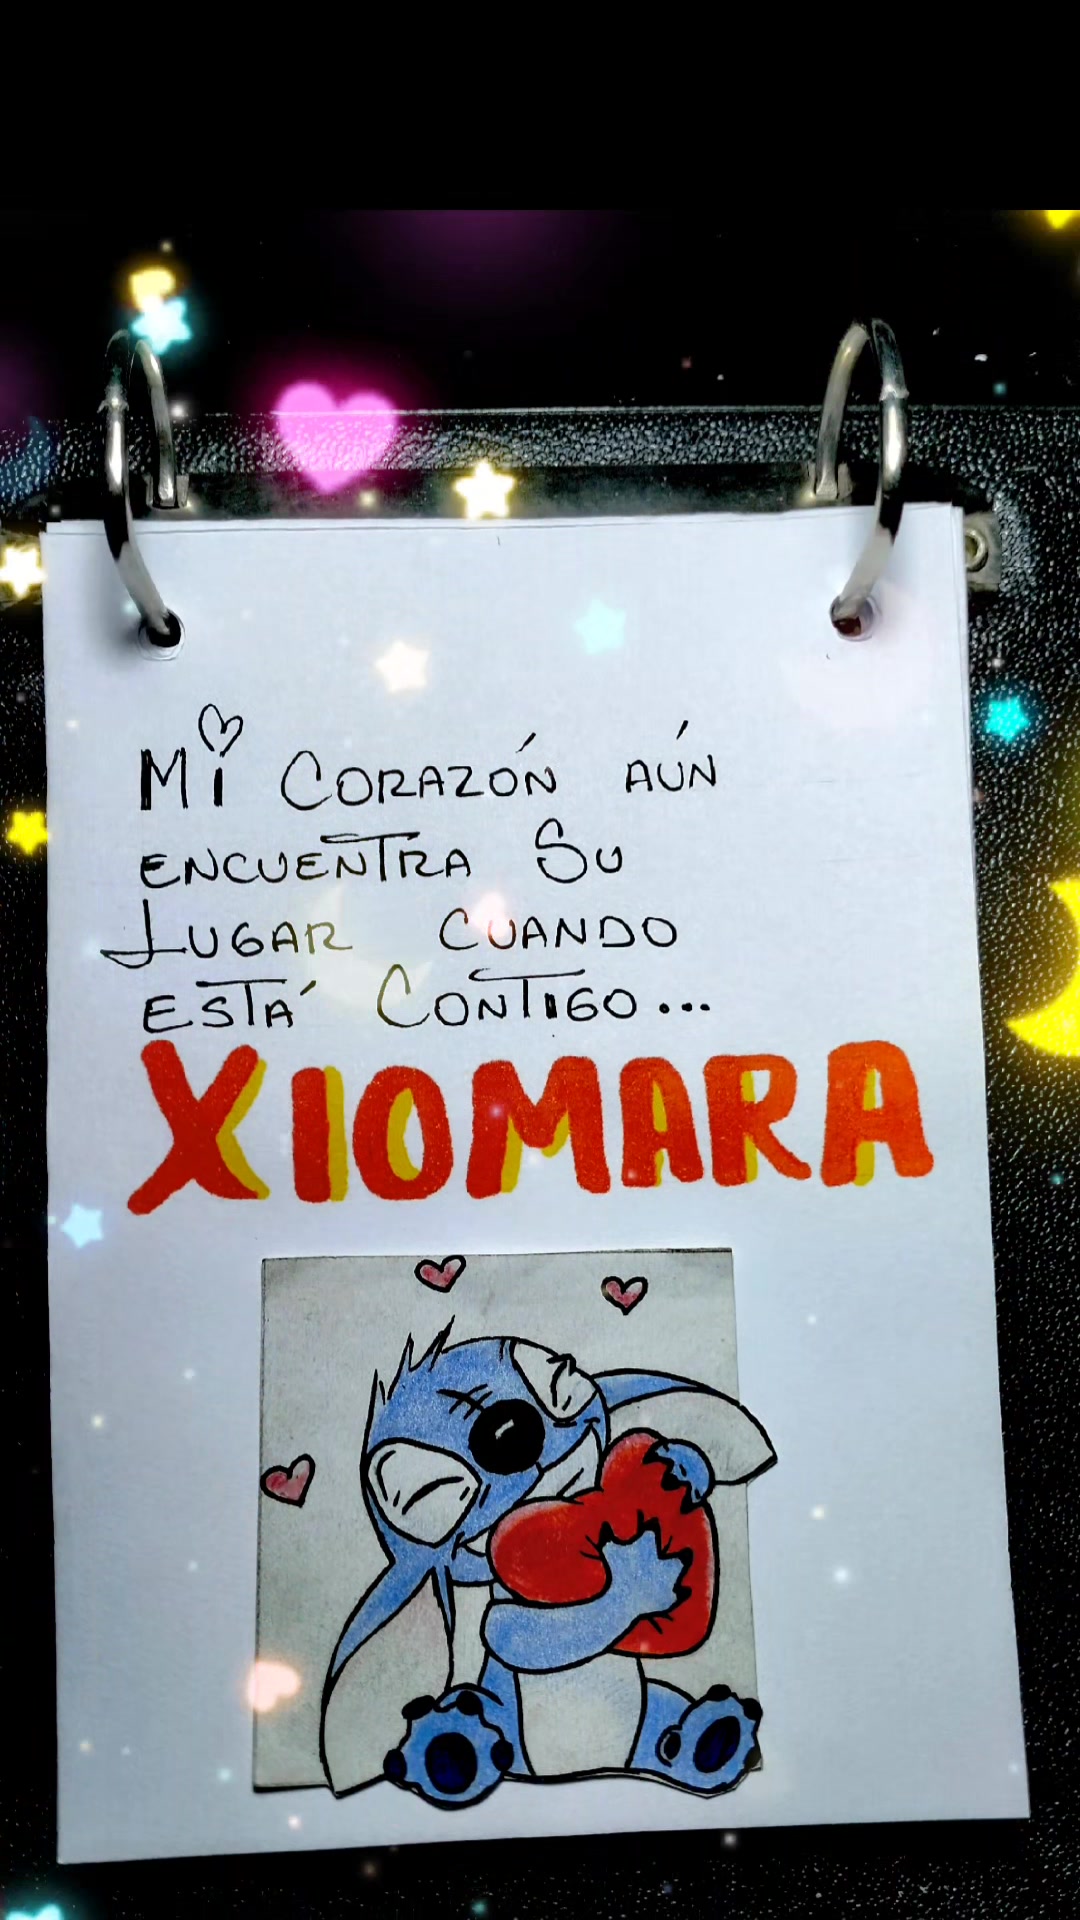 Mi CORAZÓN AÚN
ENCUENTRA SU
LUGAR CUANDO
ESTÁ CONTIGO...
XIOMARA